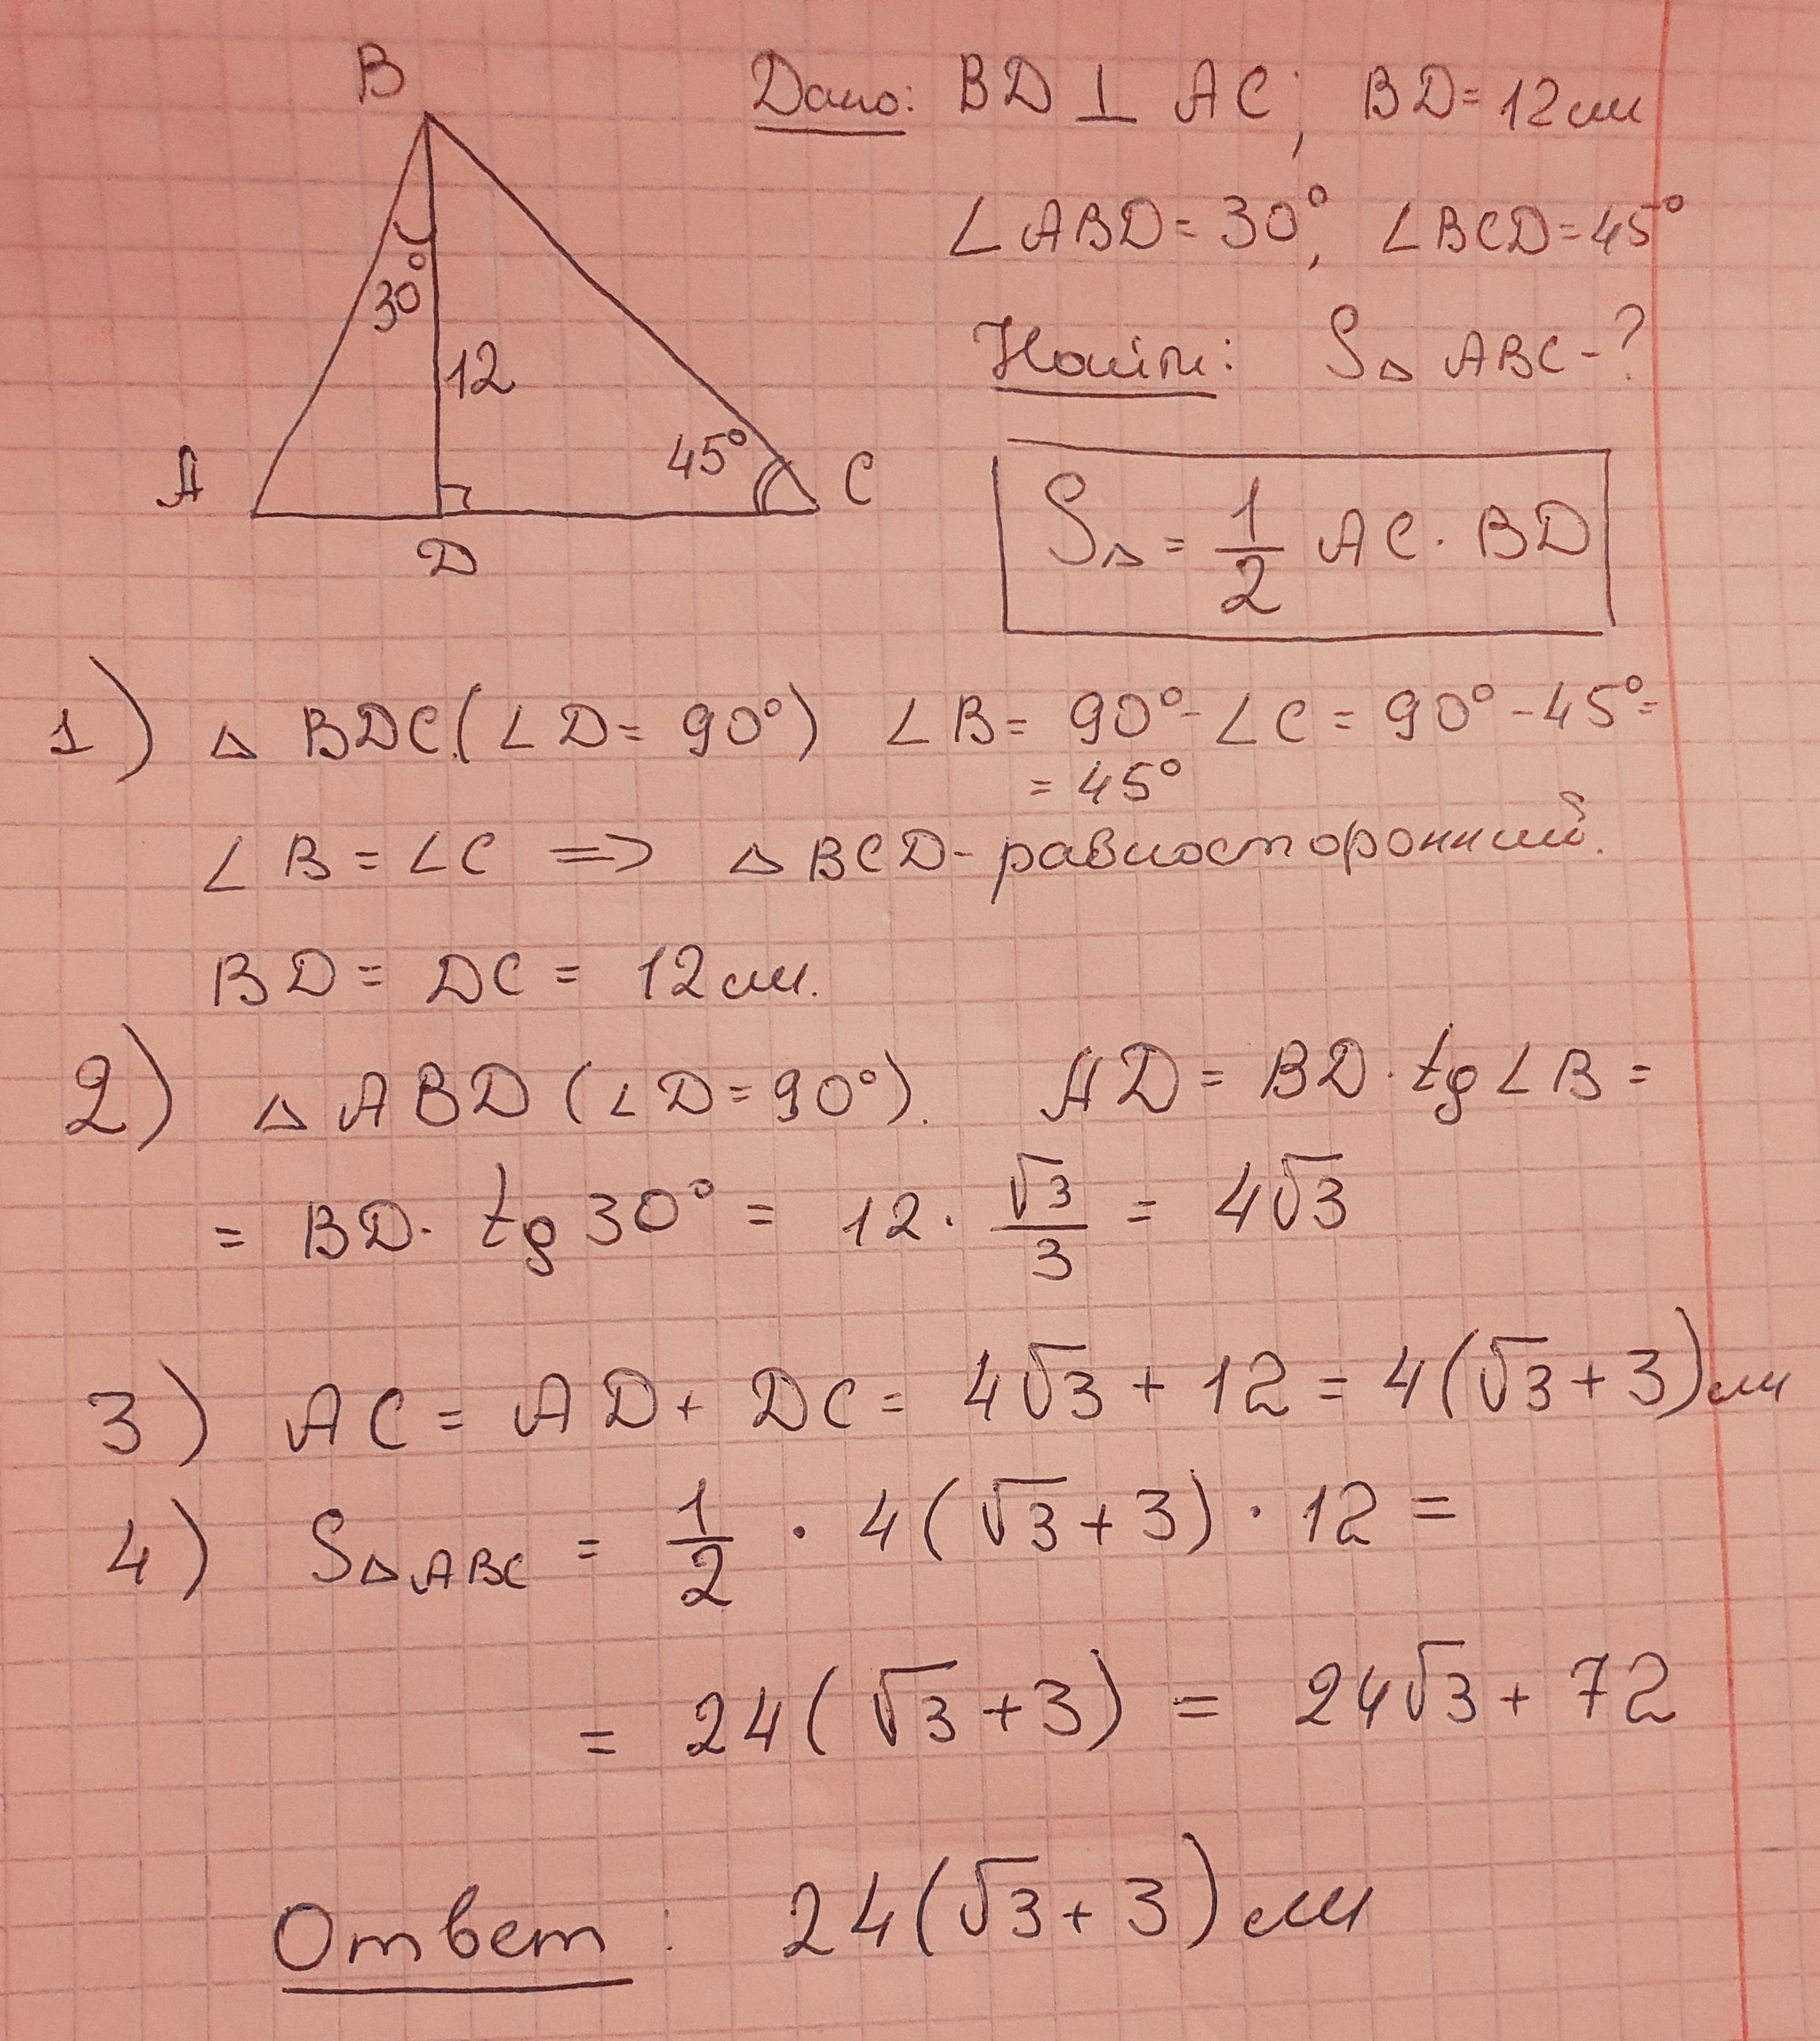 B
Дано: BD ⊥ AC; BD = 12 см
∠ABD = 30°, ∠BCD = 45°
30°
12
Найти: S△ABC - ?
45°
A
C
D
S△ = 1/2 AC · BD
1) △BDC (∠D = 90°) ∠B = 90° - ∠C = 90° - 45° =
= 45°
∠B = ∠C => △BCD - равносторонний.
BD = DC = 12 см.
2) △ABD (∠D = 90°). AD = BD · tg∠B =
= BD · tg 30° = 12 · √3/3 = 4√3
3) AC = AD + DC = 4√3 + 12 = 4(√3 + 3) см
4) S△ABC = 1/2 · 4(√3 + 3) · 12 =
= 24(√3 + 3) = 24√3 + 72
Ответ: 24(√3 + 3) см